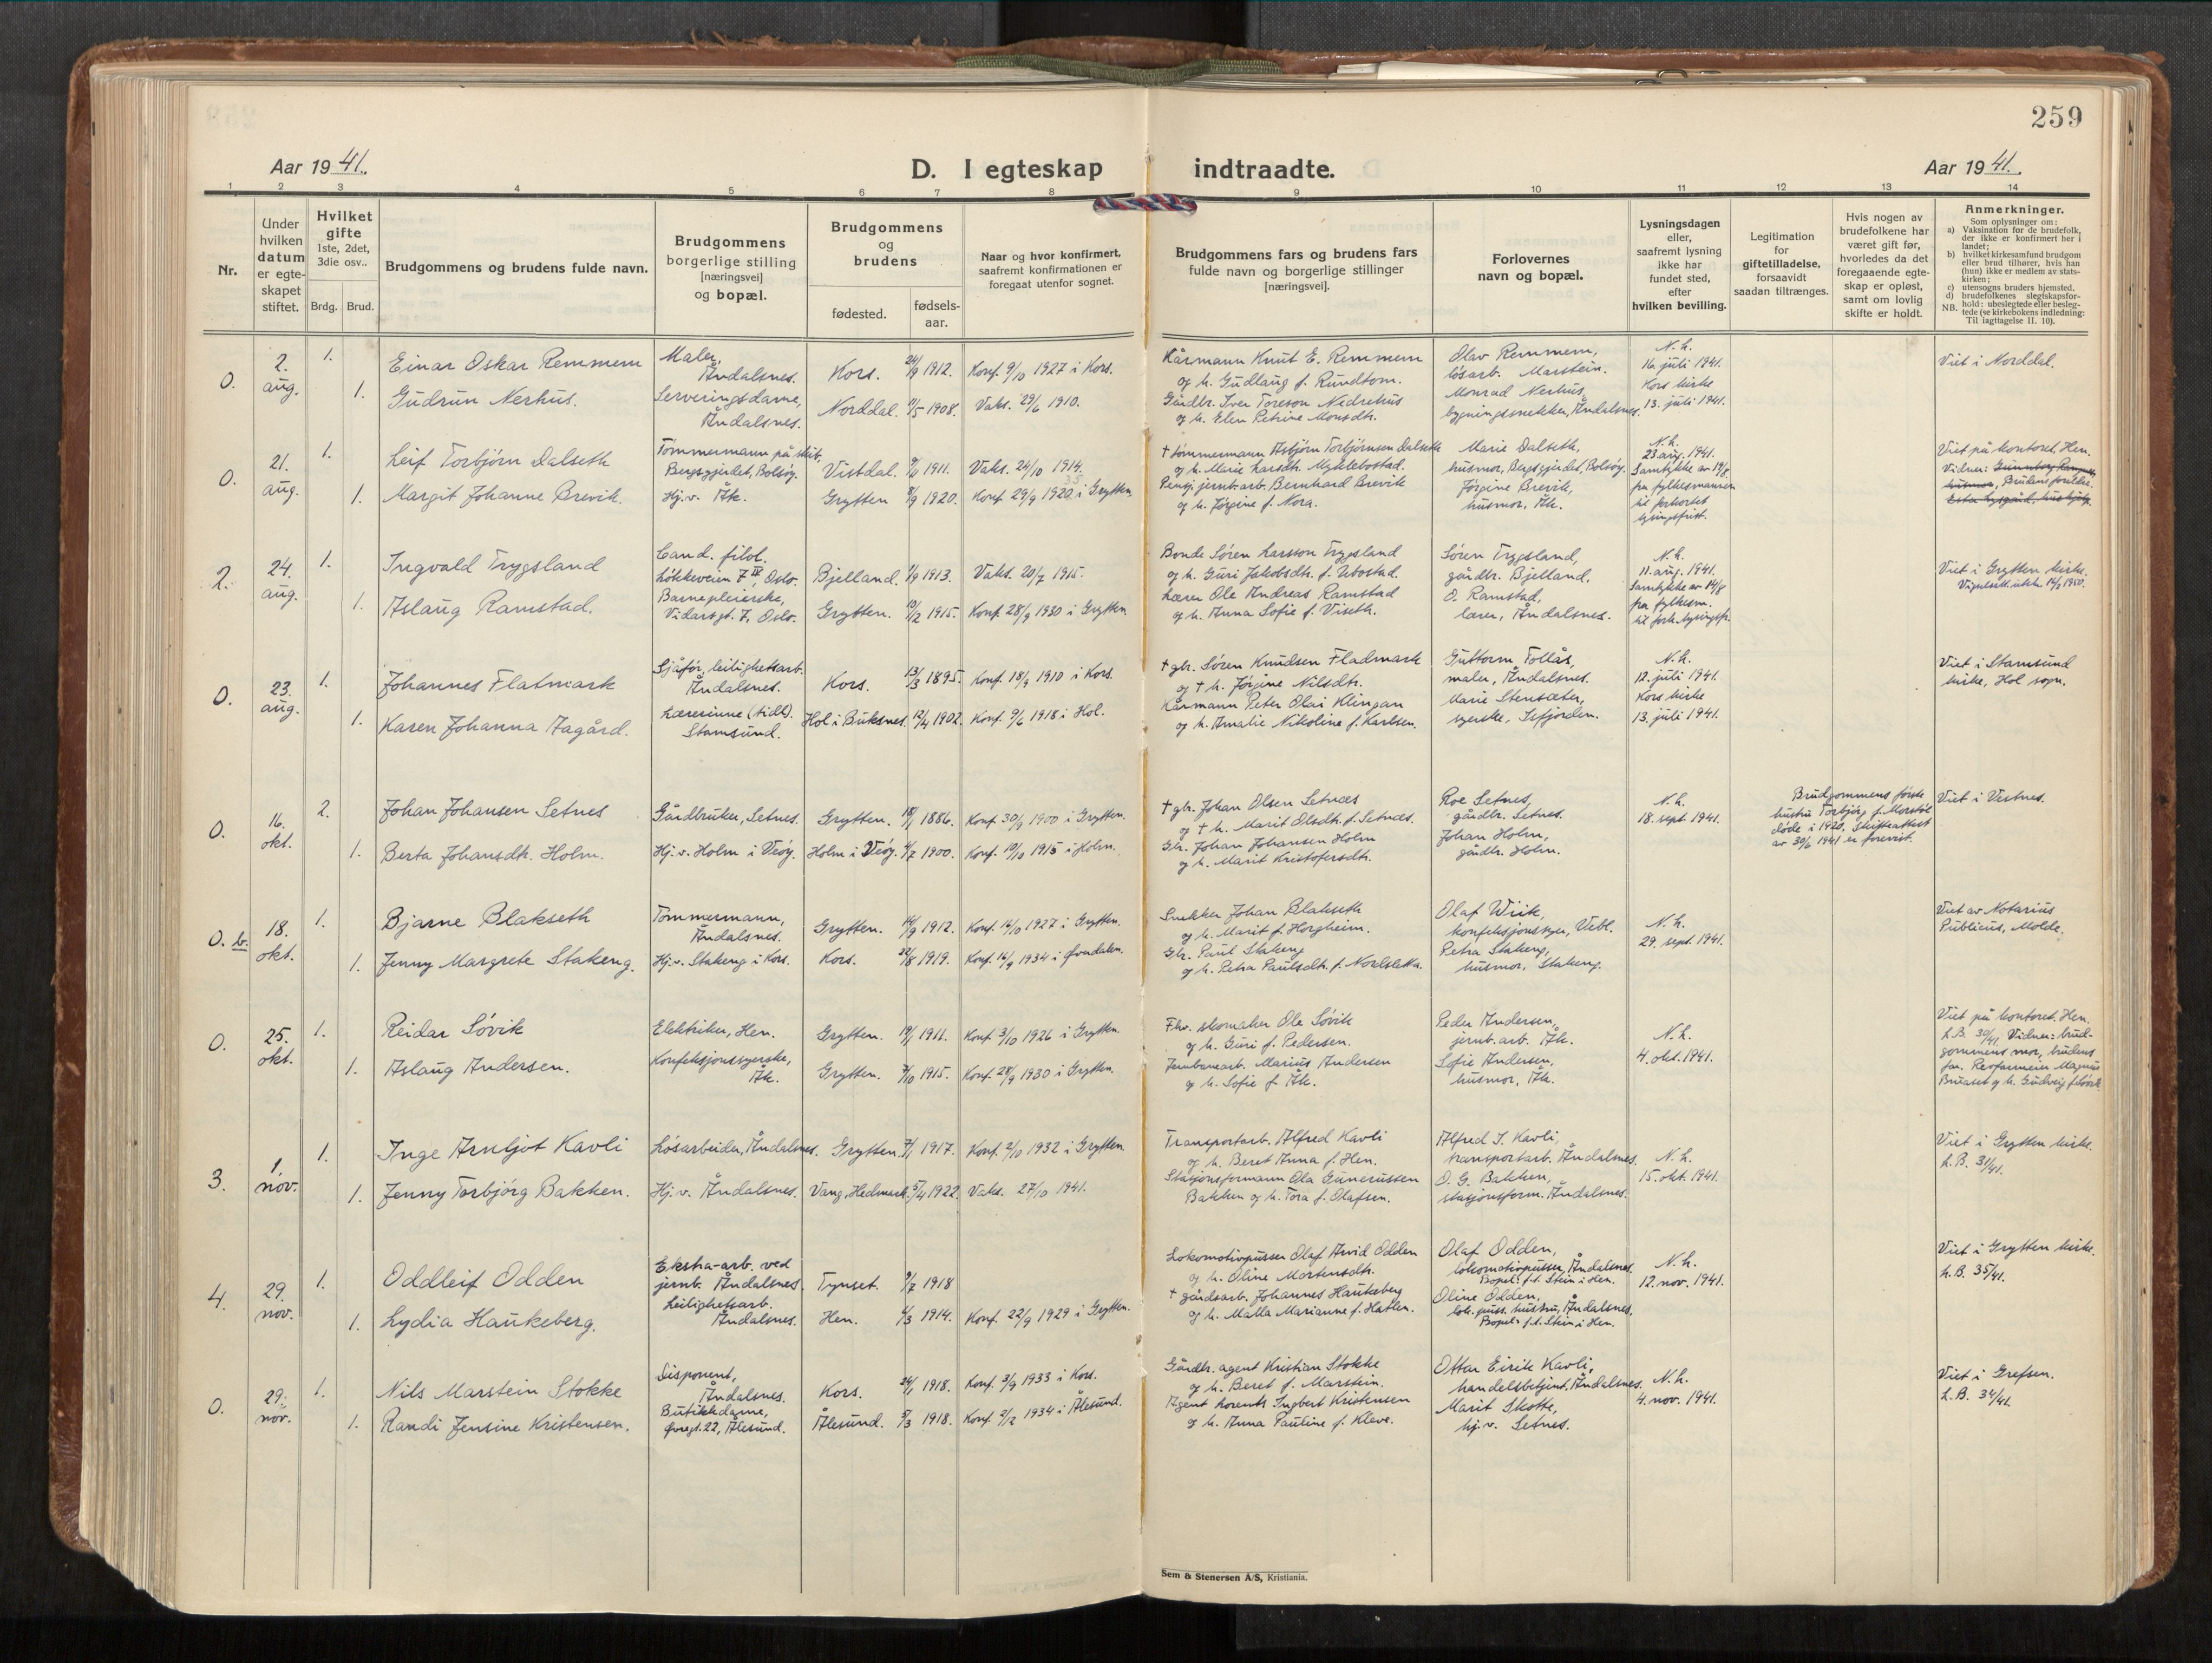 259
Aar 1941.
D. I egteskap indtraadte.
Aar 1941.
1 2 3 4 5 6 7 8 9 10 11 12 13 14
Nr.
Under hvilken datum er egte-skapet stiftet.
Hvilket gifte 1ste, 2det, 3die osv..
Brdg. Brud.
Brudgommens og brudens fulde navn.
Brudgommens borgerlige stilling [næringsvei] og bopæl.
Brudgommens og brudens
fødested.
fødsels-aar.
Naar og hvor konfirmert, saafremt konfirmationen er foregaat utenfor sognet.
Brudgommens fars og brudens fars fulde navn og borgerlige stillinger [næringsvei].
Forlovernes navn og bopæl.
Lysningsdagen eller, saafremt lysning ikke har fundet sted, efter hvilken bevilling.
Legitimation for giftetilladelse, forsaavidt saadan tiltrænges.
Hvis nogen av brudefolkene har været gift før, hvorledes da det foregaaende egte-skap er opløst, samt om lovlig skifte er holdt.
Anmerkninger.
Som oplysninger om:
a) Vaksination for de brudefolk, der ikke er konfirmert her i landet;
b) hvilket kirkesamfund brudgom eller brud tilhører, hvis han (hun) ikke er medlem av stats-kirken;
c) utensogns bruders hjemsted.
d) brudefolkenes slegtskapsfor-hold: ubeslegtede eller besleg-tede (se kirkebokens indledning: Til Iagttagelse II. 10).
NB.
0.
2. aug.
1.
Einar Oskar Remmem
Maler, Åndalsnes.
Kors. 24/9 1912. Konf. 9/10 1927 i Kors.
Kårmann Knut E. Remmem
og h. Gudlaug f. Rundtom.
Olav Remmem,
løsarb. Marstein.
N. h.
16. juli 1941.
Kors kirke
13. juli 1941.
Viet i Norddal.
1.
Gudrun Nerhus.
Serveringsdame,
Åndalsnes.
Norddal. 9/5 1908. Vaks. 29/6 1910.
Gårdbr. Iver Toreson Nedrehus
og h. Elen Petrine Monsdtr.
Monrad Nerhus,
bygningssnekker, Åndalsnes.
0.
21. aug.
1.
Leif Torbjørn Dalseth
Tømmermann på skib,
Bergsgjerdet, Bolsøy.
Vistdal. 1911. Vaks. 24/10 1914.
† tømmermann Asbjørn Torbjørnsen Dalseth
og h. Marie Larsdtr. Myklebostad.
Marie Dalseth,
husmor, Bergsgjerdet, Bolsøy.
N. h.
23 aug. 1941.
Samtykke av 19/8
fra fylkesmannen
til forkortet
lysingsfrist.
Viet på kontoret, Hen.
Vidner:
Brudens foreldre.
1.
Margit Johanne Brevik.
Hj. v. Åk.
Grytten 8/9 1920. Konf. 29/9 1920 35 i Grytten.
Pensj. jernb.arb. Bernhard Brevik
og h. Jørgine f. Nora.
Jørgine Brevik,
husmor, Åk.
2.
24. aug.
1.
Ingvald Trygsland
Cand. filol.
Løkkeveien 7 IV, Oslo.
Bjelland. 1/9 1913. Vaks. 20/7 1915.
Bonde Søren Larsson Trygsland
og h. Guri Jakobsdtr. f. Ubostad.
Søren Trygsland,
gårdbr. Bjelland.
N. h.
11. aug. 1941.
Samtykke av 14/8
fra fylkesm.
til fork. lysingsfr.
Viet i Grytten kirke.
Vigselsatt. utst. 14/9 1950.
1.
Aslaug Ramstad.
Barnepleierske,
Vidarsgt. 7, Oslo.
Grytten. 13/2 1915. Konf. 28/9 1930 i Grytten.
Lærer Ole Andreas Ramstad
og h. Anna Sofie f. Viseth.
O. Ramstad,
lærer, Åndalsnes.
0.
23. aug.
1.
Johannes Flatmark
Sjåfør, leilighetsarb.
Åndalsnes.
Kors. 13/3 1895. Konf. 18/9 1910 i Kors.
† gbr. Søren Knudsen Fladmark
og † h. Jørgine Nilsdtr.
Guttorm Tollås,
maler, Åndalsnes.
N. h.
12. juli 1941.
Kors kirke
13. juli 1941.
Viet i Stamsund
kirke, Hol sogn.
1.
Karen Johanna Aagård.
Lærerinne (tidl.)
Stamsund.
Hol i Buksnes. 12/4 1902. Konf. 9/6 1918 i Hol.
Kårmann Peter Olai Klingan
og h. Amalie Nikoline f. Karlsen.
Marie Stensæter,
syerske, Isfjorden.
0.
16. okt.
2.
Johan Johansen Setnes
Gårdbruker, Setnes.
Grytten. 18/1 1886. Konf. 30/9 1900 i Grytten.
† gbr. Johan Olsen Setnæs
og † h. Marit Olsdtr. f. Setnæs.
Roe Setnes,
gårdbr. Setnes.
N. h.
18. sept. 1941.
Brudgommens første
hustru Torbjørg f. Morstøl
døde i 1920. Skifteattest
av 30/6 1941 er forevist.
Viet i Vestnes.
1.
Berta Johansdtr. Holm.
Hj. v. Holm i Veøy.
Holm i Veøy. 4/7 1900. Konf. 10/10 1915 i Holm.
Gbr. Johan Johansen Holm
og h. Marit Kristofersdtr.
Johan Holm,
gårdbr. Holm.
0. b.
18. okt.
1.
Bjarne Blakseth
Tømmermann,
Åndalsnes.
Grytten. 14/9 1912. Konf. 16/10 1927 i Grytten.
Snekker Johan Blakseth
og h. Marit f. Horgheim.
Olaf Wiik,
konfeksjonssyer, Vebl.
N. h.
29. sept. 1941.
Viet av Notarius
Publicus, Molde.
1.
Jenny Margrete Stakeng.
Hj. v. Stakeng i Kors.
Kors. 22/8 1919. Konf. 16/9 1934 i Øvredalen.
Gbr. Paul Stakeng
og h. Petra Paulsdtr. f. Nordsletta.
Petra Stakeng,
husmor, Stakeng.
0.
25. okt.
1.
Reidar Søvik
Elektriker, Hen.
Grytten. 19/1 1911. Konf. 3/10 1926 i Grytten.
Fhv. skomaker Ole Søvik
og h. Guri f. Pedersen.
Peder Andersen,
jernb.arb. Åk.
N. h.
4. okt. 1941.
Viet på kontoret, Hen.
L.B. 30/41. Vidner: brud-
gommens mor, brudens
far. Magnus
Bruaset og h. Gudveig f. Søvik
1.
Aslaug Andersen.
Konfeksjonssyerske,
Åk.
Grytten. 7/10 1915. Konf. 28/9 1930 i Grytten.
Jernbanearb. Marius Andersen
og h. Sofie f. Åk.
Sofie Andersen,
husmor, Åk.
3.
1. nov.
1.
Inge Arnljot Kavli
Løsarbeider, Åndalsnes.
Grytten. 7/1 1917. Konf. 2/10 1932 i Grytten.
Transportarb. Alfred Kavli
og h. Beret Anna f. Hen.
Alfred I. Kavli,
transportarb. Åndalsnes.
N. h.
15. okt. 1941.
Viet i Grytten kirke.
L.B. 31/41.
1.
Jenny Torbjørg Bakken.
Hj. v. Åndalsnes.
Vang, Hedmark. 5/4 1922. Vaks. 27/10 1941.
Stasjonsformann Ola Gunerussen
Bakken og h. Tora f. Olafsen.
O. G. Bakken,
stasjonsform. Åndalsnes.
4.
29. nov.
1.
Oddleif Odden
Ekstra-arb. ved
jernb. Åndalsnes.
Tynset. 9/7 1918
Lokomotivpusser Olaf Arvid Odden
og h. Oline Mortensdtr.
Olaf Odden,
lokomotivpusser, Åndalsnes.
Bopel: f.t. Stein i Hen.
N. h.
12. nov. 1941.
Viet i Grytten kirke.
L.B. 35/41.
1.
Lydia Haukeberg.
Leilighetsarb.
Åndalsnes.
Hen. 6/3 1914. Konf. 22/9 1929 i Grytten.
† gårdsarb. Johannes Haukeberg
og h. Malla Marianne f. Hatlen.
Oline Odden,
lok. puss. hustru, Åndalsnes.
Bopel: f.t. Stein i Hen.
0.
29. nov.
1.
Nils Marstein Stokke
Disponent,
Åndalsnes.
Kors. 24/1 1918. Konf. 3/9 1933 i Kors.
Gårdbr. agent Kristian Stokke
og h. Beret f. Marstein.
Ottar Eirik Kavli,
handelsbetjent, Åndalsnes.
N. h.
4. nov. 1941.
Viet i Grefsen.
L.B. 34/41.
1.
Randi Jensine Kristensen.
Butikkdame,
Øvregt. 22, Ålesund.
Ålesund. 5/3 1918. Konf. 2/2 1934 i Ålesund.
Agent Lorents Ingbert Kristensen
og h. Anna Pauline f. Kleve.
Marit Skotte,
hj. v. Setnes.
Sem & Stenersen A/S, Kristiania.